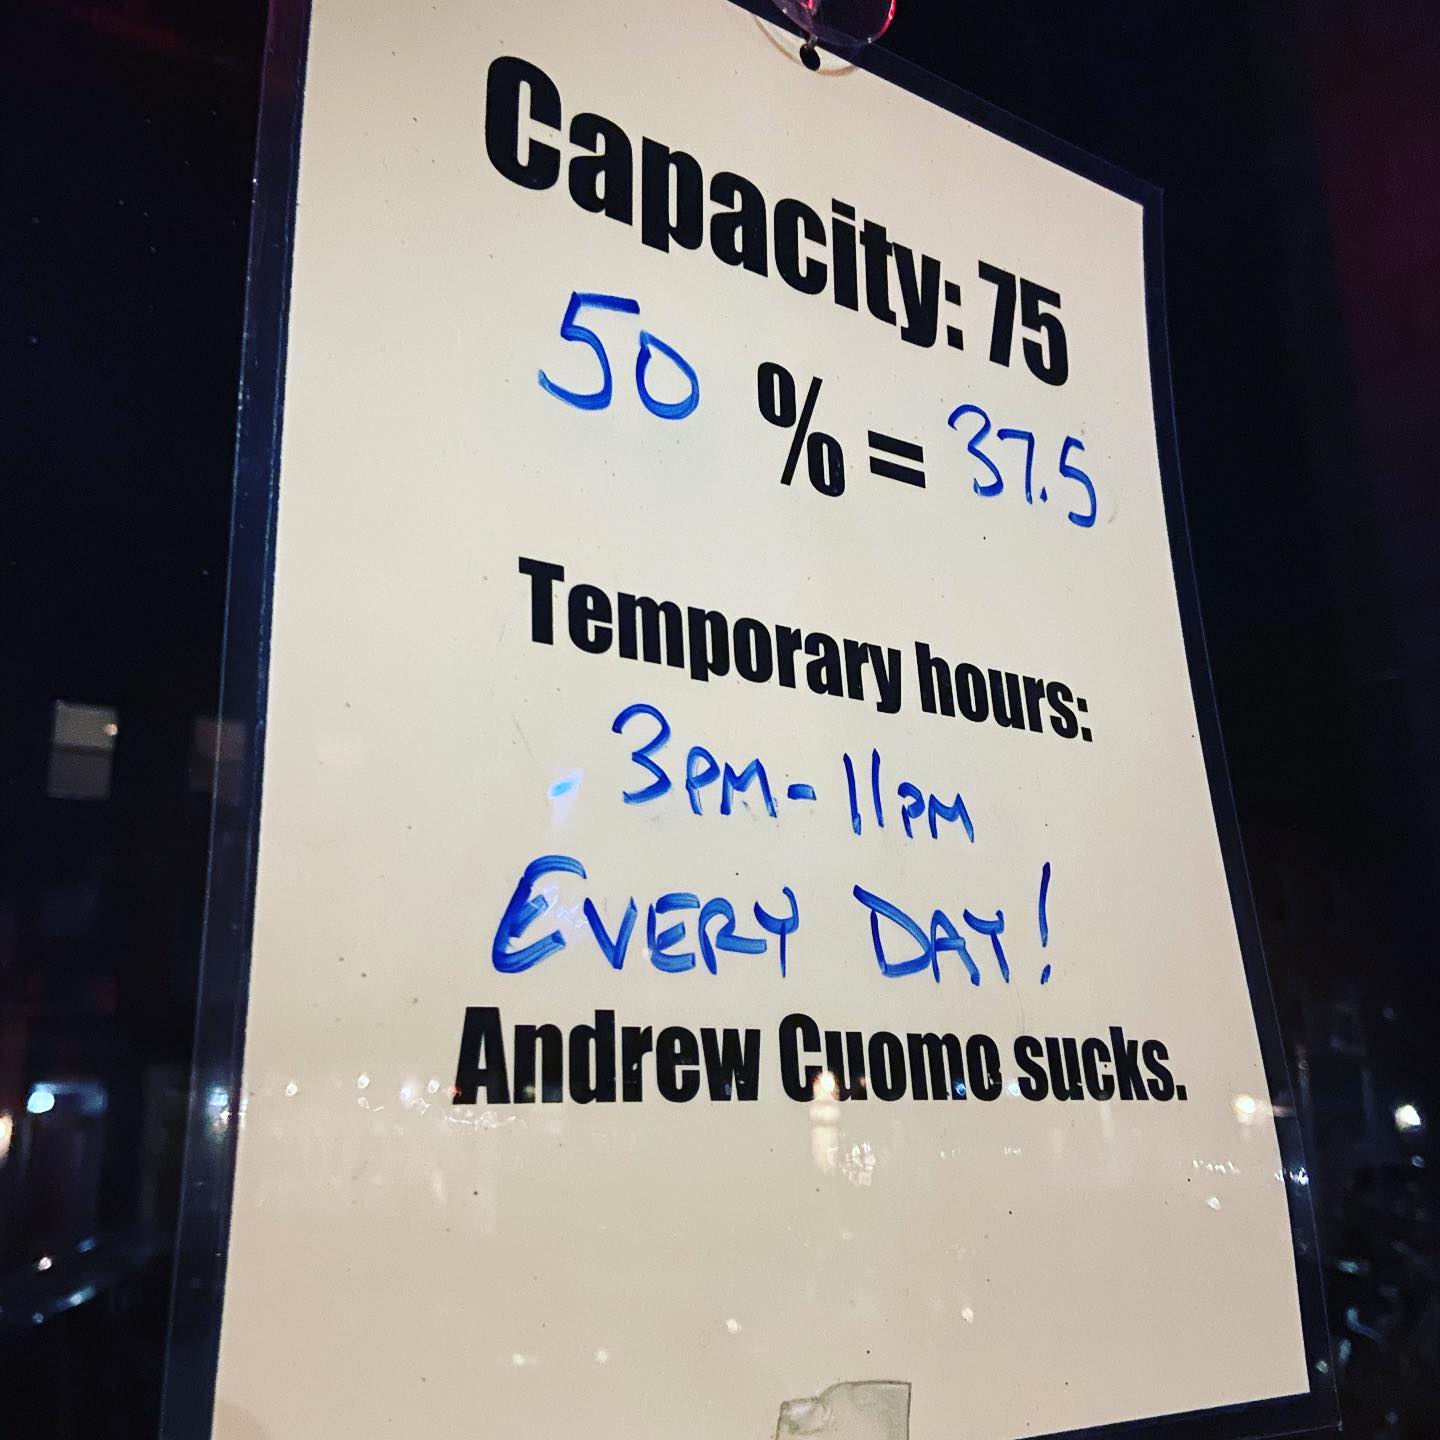 Capacity: 75
50 % = 37.5
Temporary hours:
3PM - 11PM
EVERY DAY!
Andrew Cuomo sucks.